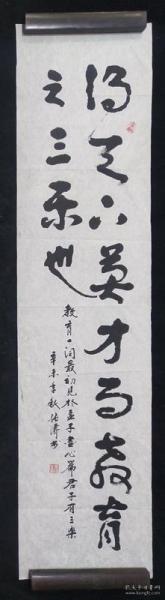 得天下英才而教育
之三乐也
教育一词最初见于孟子尽心篇君子有三乐
辛未季秋